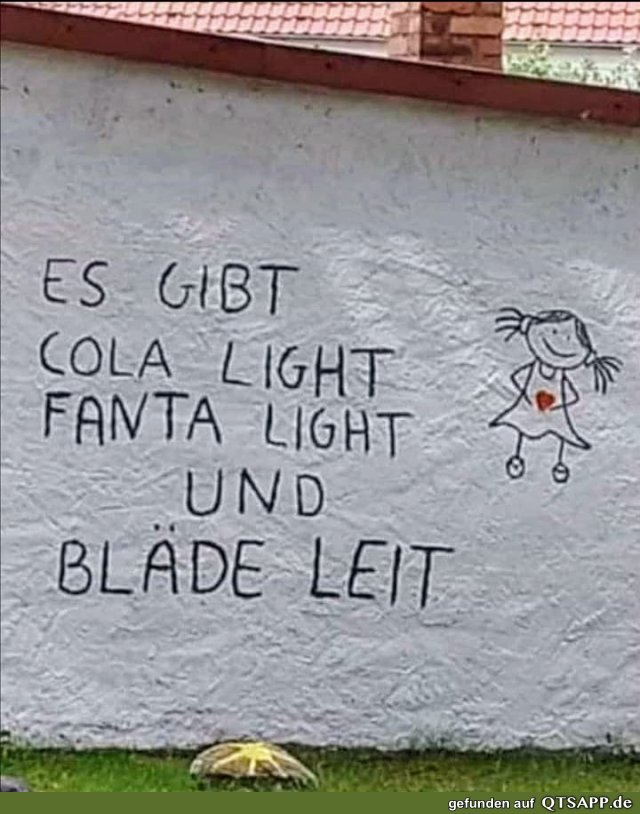 ES GIBT
COLA LIGHT
FANTA LIGHT
UND
BLÄDE LEIT
gefunden auf QTSAPP.de